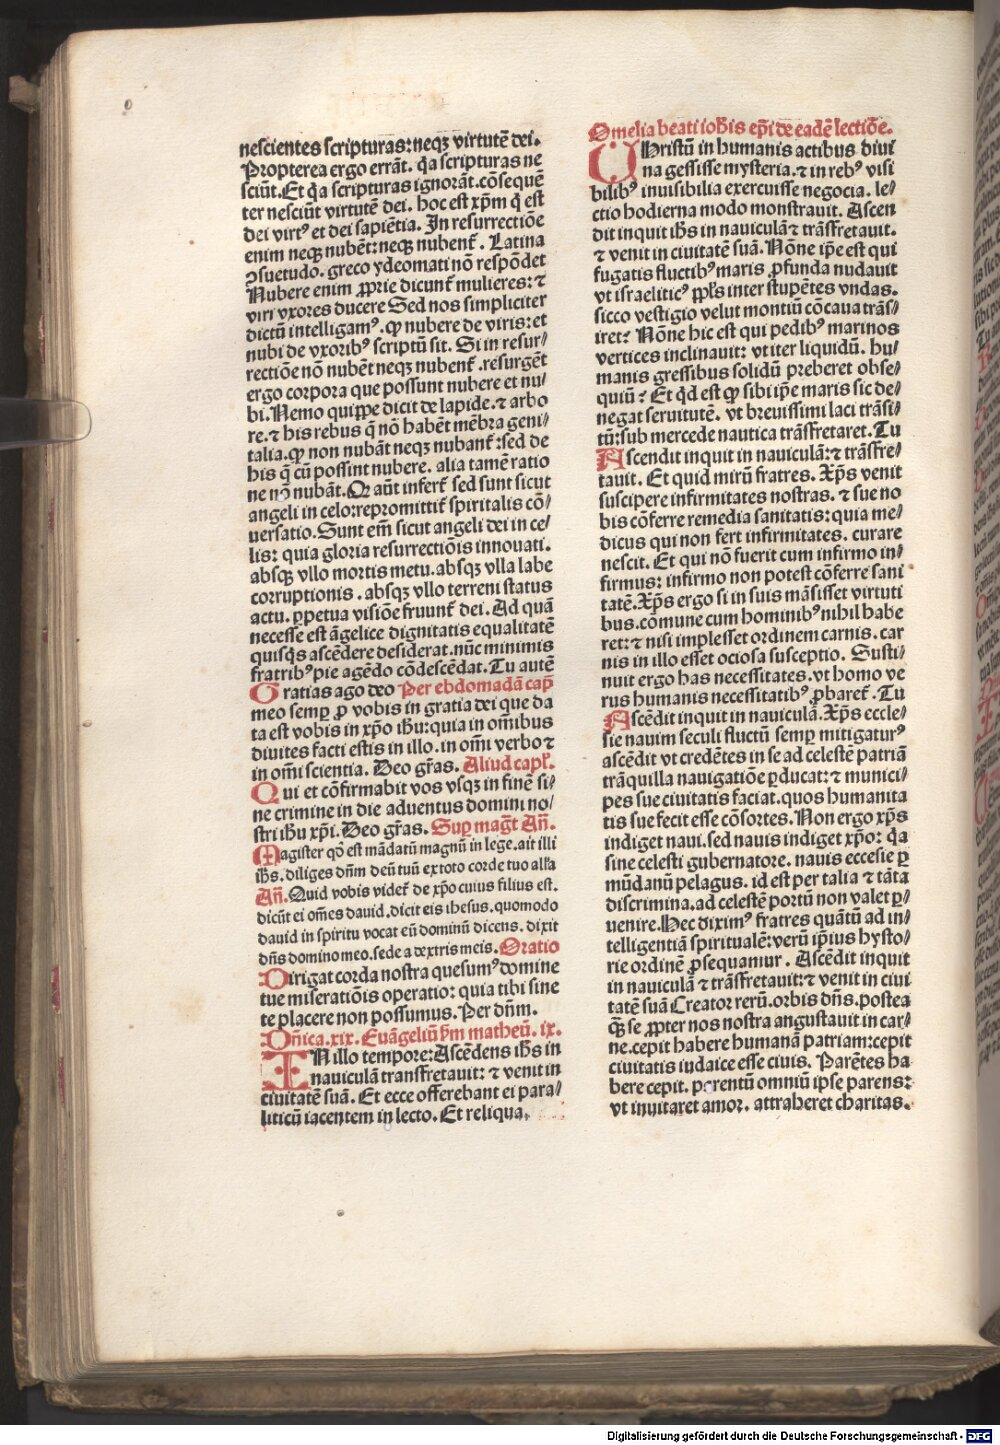 nescientes scripturas: neqꝫ virtutẽ dei.
Propterea ergo errãt. q̃a scripturas ne
sciũt. Et q̃a scripturas ignorãt. cõsequẽ
ter nesciũt virtutẽ dei. hoc est xp̃m q̃ est
dei virtꝰ et dei sapiẽtia. In resurrectiõe
enim neqꝫ nubẽt: neqꝫ nubent᷑. Latina
ꝯsuetudo. greco ydeomati nõ respõdet
Nubere enim ꝓprie dicunt᷑ mulieres: ⁊
viri vxores ducere Sed nos simpliciter
dictũ intelligamꝰ. ꝙ nubere de viris: et
nubi de vxoribꝰ scriptũ sit. Si in resur/
rectiõe nõ nubẽt neqꝫ nubent᷑. resurgẽt
ergo corpora que possunt nubere et nu/
bi. Nemo quippe dicit de lapide. ⁊ arbo
re. ⁊ his rebus q̃ nõ habẽt mẽbra geni/
talia. ꝙ non nubãt neqꝫ nubant᷑: sed de
his q̃ cũ possint nubere. alia tamẽ ratio
ne nõ nubãt. Qꝛ aũt infert᷑ sed sunt sicut
angeli in celo: repromittit᷑ spiritalis cõ/
uersatio. Sunt em̃ sicut angeli dei in ce/
lis: quia gloria resurrectiõis innouati.
absqꝫ vllo mortis metu. absqꝫ vlla labe
corruptionis. absqꝫ vllo terreni status
actu. ꝑpetua visiõe fruunt᷑ dei. Ad quã
necesse est ãgelice dignitatis equalitatẽ
quisq̃s ascẽdere desiderat. nũc minimis
fratribꝰ pie agẽdo cõdescẽdat. Tu autẽ
Gratias ago deo Per ebdomadã cap̃
meo semꝑ ꝓ vobis in gratia dei que da
ta est vobis in xp̃o ih̃u: quia in om̃ibus
diuites facti estis in illo. in om̃i verbo ⁊
in om̃i scientia. Deo gr̃as. Aliud cap̃t.
Qui et cõfirmabit vos vsqꝫ in finẽ si/
ne crimine in die aduentus domini no/
stri ih̃u xp̃i. Deo gr̃as. Suꝑ mag̃t Añ.
Magister qð est mãdatũ magnũ in lege. ait illi
ih̃s. diliges dñm deũ tuũ ex toto corde tuo all̃a
Añ. Quid vobis videt᷑ de xp̃o cuius filius est.
dicũt ei om̃es dauid. dicit eis ihesus. quomodo
dauid in spiritu vocat eũ dominũ dicens. dixit
dñs domino meo. sede a dextris meis. Oratio
Dirigat corda nostra quesumꝰ domine
tue miseratiõis operatio: quia tibi sine
te placere non possumus. Per dñm.
Dñica. xix. Euãgeliũ ẜm matheũ. ix.
IN illo tempore: Ascẽdens ih̃s in
nauiculã transfretauit: ⁊ venit in
ciuitatẽ suã. Et ecce offerebant ei para/
liticũ iacentem in lecto. Et reliqua.
Omelia beati ioh̃is ep̃i de eadẽ lectiõe.
CHristũ in humanis actibus diui
na gessisse mysteria. ⁊ in rebꝰ visi
bilibꝰ inuisibilia exercuisse negocia. le/
ctio hodierna modo monstrauit. Ascen
dit inquit ih̃s in nauiculã ⁊ trãsfretauit.
⁊ venit in ciuitatẽ suã. Nõne ip̃e est qui
fugatis fluctibꝰ maris ꝓfunda nudauit
vt israeliticꝰ ppl̃s inter stupẽtes vndas.
sicco vestigio velut montiũ cõcaua trãs/
iret? Nõne hic est qui pedibꝰ marinos
vertices inclinauit: vt iter liquidũ. hu/
manis gressibus solidũ preberet obse/
quiũ? Et q̃d est ꝙ sibi ip̃e maris sic de/
negat seruitutẽ. vt breuissimi laci trãsi/
tũ: sub mercede nautica trãsfretaret. Tu
Ascendit inquit in nauiculã: ⁊ trãsfre/
tauit. Et quid mirũ fratres. Xp̃s venit
suscipere infirmitates nostras. ⁊ sue no
bis cõferre remedia sanitatis: quia me/
dicus qui non fert infirmitates. curare
nescit. Et qui nõ fuerit cum infirmo in/
firmus: infirmo non potest cõferre sani
tatẽ. Xp̃s ergo si in suis mãsisset virtuti
bus. cõmune cum hominibꝰ nihil habe
ret: ⁊ nisi implesset ordinem carnis. car
nis in illo esset ociosa susceptio. Susti/
nuit ergo has necessitates. vt homo ve
rus humanis necessitatibꝰ ꝓbaret᷑. Tu
Ascẽdit inquit in nauiculã. Xp̃s eccle/
sie nauim seculi fluctũ semꝑ mitigaturꝰ
ascẽdit vt credẽtes in se ad celestẽ patriã
trãquilla nauigatiõe ꝑducat: ⁊ munici/
pes sue ciuitatis faciat. quos humanita
tis sue fecit esse cõsortes. Non ergo xp̃s
indiget naui. sed nauis indiget xp̃o: q̃a
sine celesti gubernatore. nauis eccesie ꝑ
mũdanũ pelagus. id est per talia ⁊ tãta
discrimina. ad celestẽ portũ non valet ꝑ/
uenire. Hec diximꝰ fratres quãtũ ad in/
telligentiã spiritualẽ: verũ ip̃ius hysto/
rie ordinẽ ꝓsequamur. Ascẽdit inquit
in nauiculã ⁊ trãsfretauit: ⁊ venit in ciui
tatẽ suã Creator rerũ. orbis dñs. postea
q̃ꝫ se ꝓpter nos nostra angustauit in car/
ne. cepit habere humanã patriam: cepit
ciuitatis iudaice esse ciuis. Parẽtes ha/
bere cepit. parentũ omniũ ipse parens:
vt inuitaret amor. attraheret charitas.
Digitalisierung gefördert durch die Deutsche Forschungsgemeinschaft - DFG